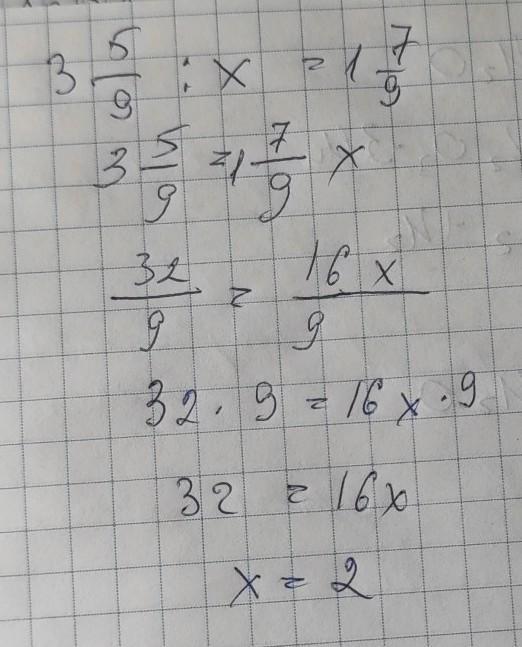 3 5/9 : x = 1 7/9
3 5/9 = 1 7/9 x
32/9 = 16x/9
32 · 9 = 16x · 9
32 = 16x
x = 2